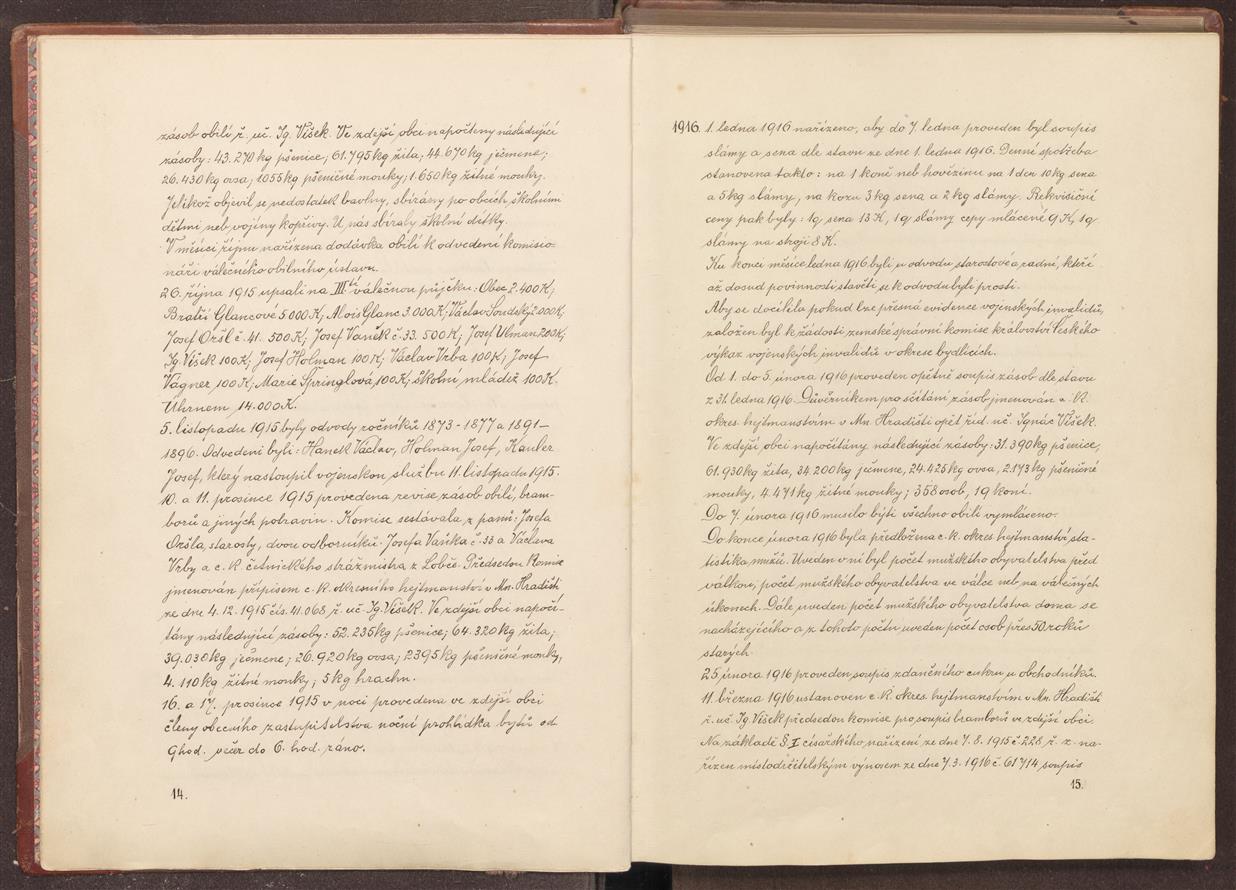 zásob obilí ř. uč. Ig. Víšek. Ve zdejší obci napočteny následující
zásoby: 43.270 kg pšenice; 61.795 kg žita; 44.670 kg ječmene;
26.430 kg ovsa; 1055 kg pšeničné mouky; 1.650 kg žitné mouky.
Jelikož objevil se nedostatek bavlny, sbírány po obcích školními
dětmi neb vojíny kopřivy. U nás sbíraly školní dítky.
V měsíci říjnu nařízena dodávka obilí k odvedení komisio-
náři válečného obilního ústavu.
26. října 1915 upsali na IIItí válečnou půjčku: Obec 2.400 K;
Bratři Glancové 5.000 K; Alois Glanc 3.000 K; Václav Loudský 2.000 K;
Josef Oršl č. 41. 500 K; Josef Vaněk č. 33. 500 K; Josef Ulman 200 K;
Ig. Víšek 100 K; Josef Holman 100 K; Václav Vrba 100 K; Josef
Vágner 100 K; Marie Špringlová 100 K; školní mládež 100 K.
Úhrnem 14.000 K.
5. listopadu 1915 byly odvody ročníků 1873 - 1877 a 1891 -
1896. Odvedeni byli: Hanek Václav, Holman Josef, Kauler
Josef, který nastoupil vojenskou službu 11. listopadu 1915.
10. a 11. prosince 1915 provedena revise zásob obilí, bram-
borů a jiných potravin. Komise sestávala z panů: Josefa
Oršla, starosty, dvou odborníků: Josefa Vaňka č. 33 a Václava
Vrby a c. k. četnického strážmistra z Lobče. Předsedou komise
jmenován přípisem c. k. okresního hejtmanství v Mn. Hradišti
ze dne 4. 12. 1915 čís. 41.068 ř. uč. Ig. Víšek. Ve zdejší obci napočí-
tány následující zásoby: 52.235 kg pšenice; 64.320 kg žita;
39.030 kg ječmene; 26.920 kg ovsa; 2395 kg pšeničné mouky,
4.110 kg žitné mouky; 5 kg hrachu.
16. a 17. prosince 1915 v noci provedena ve zdejší obci
členy obecního zastupitelstva noční prohlídka bytů od
9 hod. večer do 6. hod. ráno.
14.
1916. 1. ledna 1916 nařízeno, aby do 7. ledna proveden byl soupis
slámy a sena dle stavu ze dne 1. ledna 1916. Denní spotřeba
stanovena takto: na 1 koně neb hovězinu na 1 den 10 kg sena
a 5 kg slámy, na kozu 3 kg sena a 2 kg slámy. Rekvisiční
ceny pak byly: 1q sena 13 K, 1q slámy cepy mlácené 9 K, 1q
slámy na stroji 8 K.
Ku konci měsíce ledna 1916 byli u odvodu starostové a radní, kteří
až dosud povinnosti stavěti se k odvodu byli prosti.
Aby se docílila pokud lze přesná evidence vojenských invalidů,
založen byl k žádosti zemské správní komise království Českého
výkaz vojenských invalidů v okrese bydlících.
Od 1. do 5. února 1916 proveden opětně soupis zásob dle stavu
z 31. ledna 1916. Důvěrníkem pro sčítání zásob jmenován c. k.
okres. hejtmanstvím v Mn. Hradišti opět říd. uč. Ignác Víšek.
Ve zdejší obci napočítány následující zásoby: 31.390 kg pšenice,
61.930 kg žita, 34.200 kg ječmene, 24.425 kg ovsa, 2.173 kg pšeničné
mouky, 4.471 kg žitné mouky; 358 osob, 19 koní.
Do 7. února 1916 musilo býti všechno obilí vymláceno.
Do konce února 1916 byla předložena c. k. okres. hejtmanství sta-
tistika mužů. Uveden v ní byl počet mužského obyvatelstva před
válkou, počet mužského obyvatelstva ve válce neb na válečných
úkonech. Dále uveden počet mužského obyvatelstva doma se
nacházejícího a z tohoto počtu uveden počet osob přes 50 roků
starých.
25 února 1916 proveden soupis zdaněného cukru u obchodníků.
11. března 1916 ustanoven c. k. okres. hejtmanstvím v Mn. Hradišti
ř. uč. Ig. Víšek předsedou komise pro soupis bramborů ve zdejší obci.
Na základě § I císařského nařízení ze dne 7. 8. 1915 č. 228 ř. z. na-
řízen místodržitelským výnosem ze dne 7. 3. 1916 č. 61714 soupis
15.